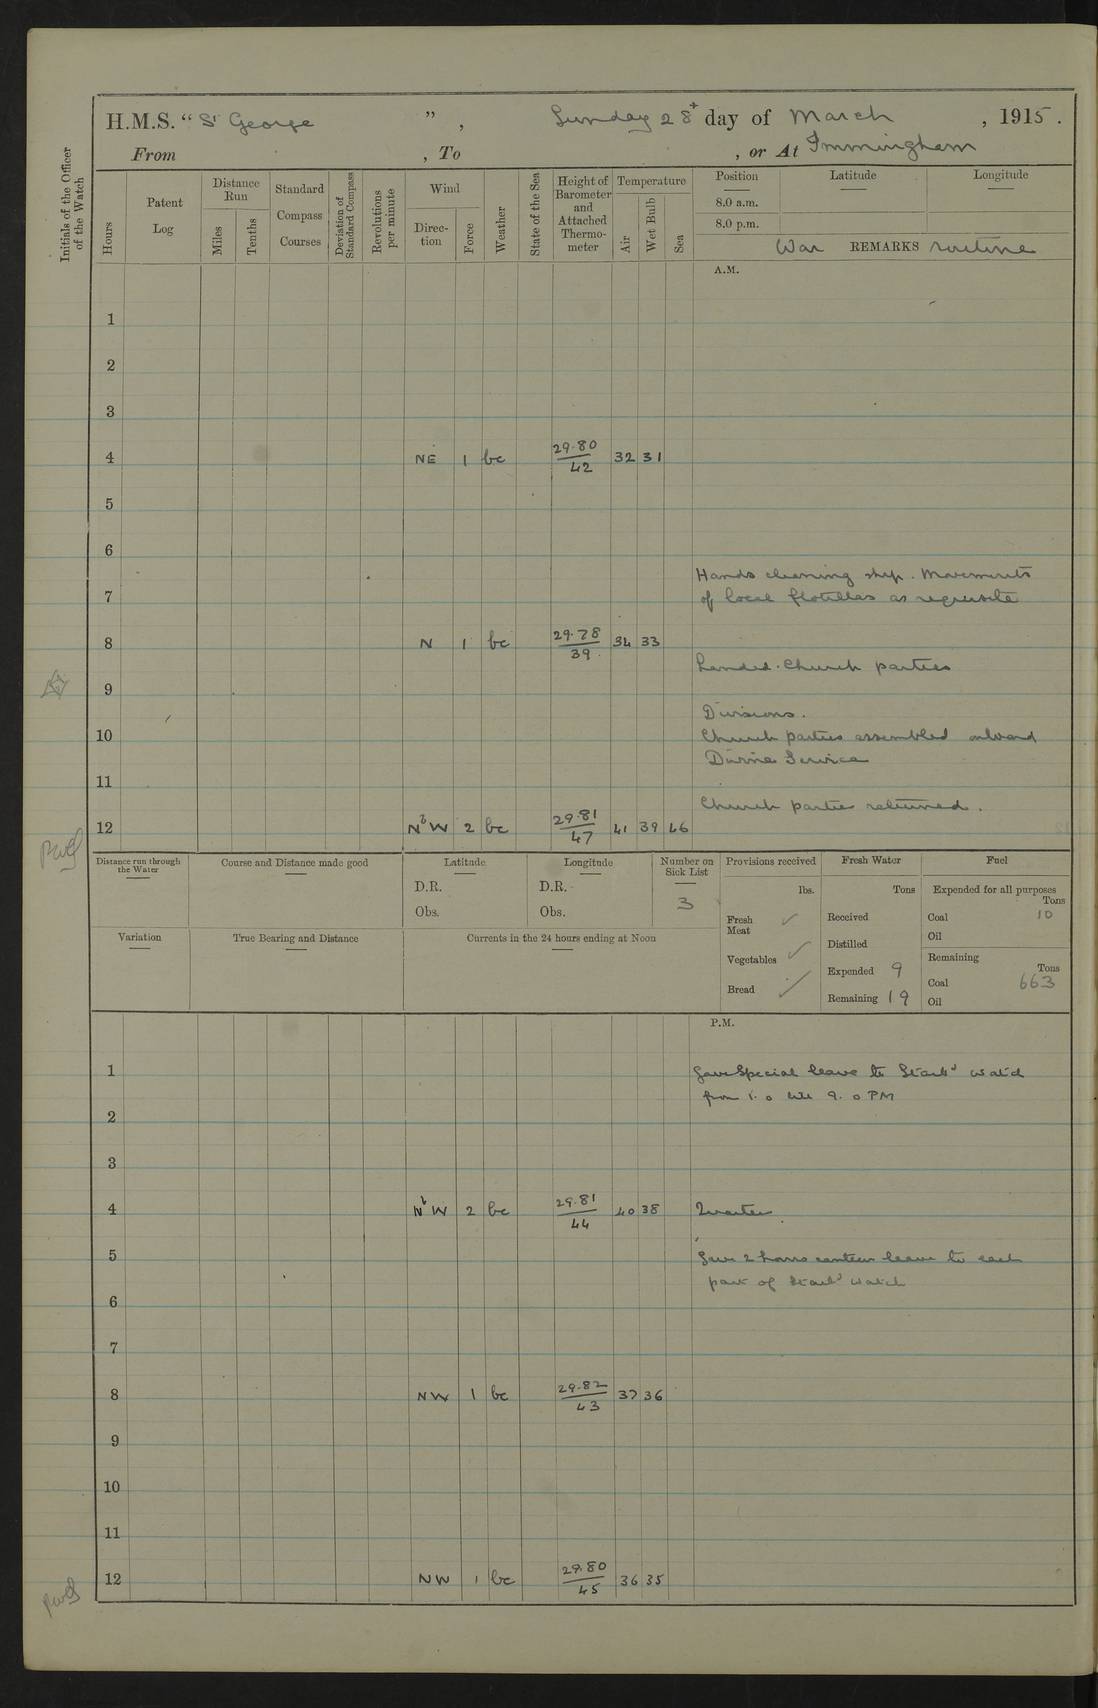 H.M.S. “ St George ” , Sunday 28th day of March , 1915.
From , To , or At Immingham
Initials of the Officer of the Watch
Hours
Patent Log
Distance Run
Miles
Tenths
Standard Compass Courses
Deviation of Standard Compass
Revolutions per minute
Wind
Direction
Force
Weather
State of the Sea
Height of Barometer and Attached Thermometer
Temperature
Air
Wet Bulb
Sea
Position Latitude Longitude
8.0 a.m.
8.0 p.m.
War REMARKS routine
A.M.
1
2
3
4 NE 1 bc 29.80 42 32 31
5
6
Hands cleaning ship. Movements
7 of local flotillas as requisite
8 N 1 bc 29.78 39 34 33
Landed Church parties
9
Divisions.
10 Church parties assembled onboard
Divine Service
11
Church parties returned.
12 NbW 2 bc 29.81 47 41 39 46
Distance run through the Water
Course and Distance made good
Latitude
D.R.
Obs.
Longitude
D.R.
Obs.
Number on Sick List
3
Provisions received
lbs.
Fresh Meat ✓
Vegetables ✓
Bread ✓
Fresh Water
Tons
Received
Distilled
Expended 9
Remaining 19
Fuel
Expended for all purposes
Tons
Coal 10
Oil
Remaining
Tons
Coal 663
Oil
Variation
True Bearing and Distance
Currents in the 24 hours ending at Noon
P.M.
1 Gave Special leave to Starbd watch
from 1.0 till 9.0 PM
2
3
4 NbW 2 bc 29.81 44 40 38 Quarters
5 Gave 2 hours canteen leave to each
part of Starbd watch
6
7
8 NW 1 bc 29.82 43 37 36
9
10
11
12 NW 1 bc 29.80 45 36 35